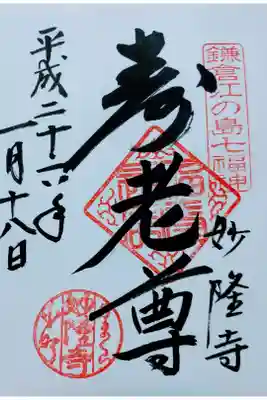 鎌倉江の島七福神
妙隆寺
寿老尊
平成二十六年
一月十八日
かまくら
妙隆寺
小町